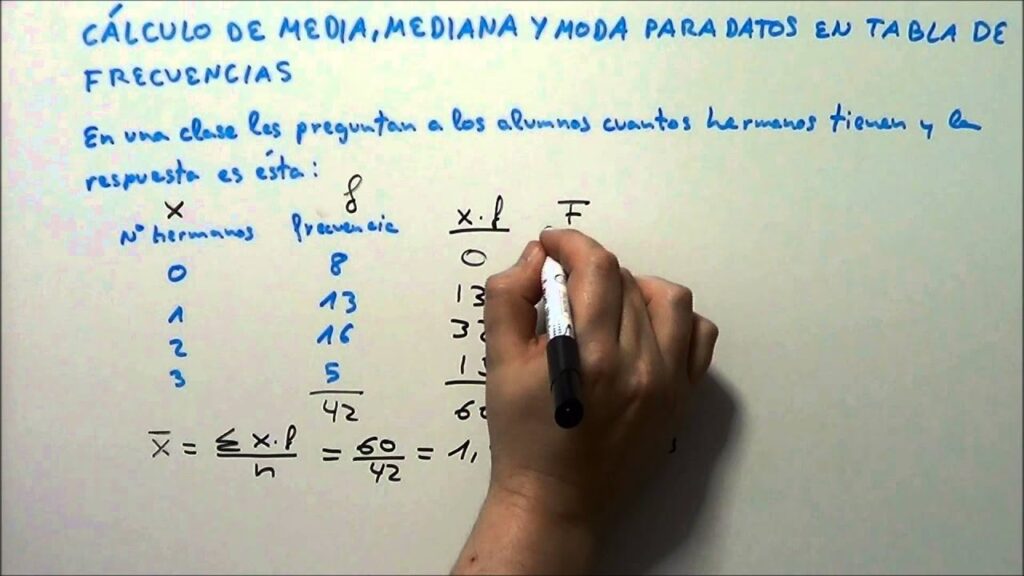 CÁLCULO DE MEDIA, MEDIANA Y MODA PARA DATOS EN TABLA DE
FRECUENCIAS
En una clase les preguntan a los alumnos cuantos hermanos tienen y la
respuesta es ésta:
x f x·f F
Nº hermanos frecuencia
0 8 0
1 13 13
2 16 32
3 5
42 60
x̄ = Σ x·f / n = 60 / 42 = 1,